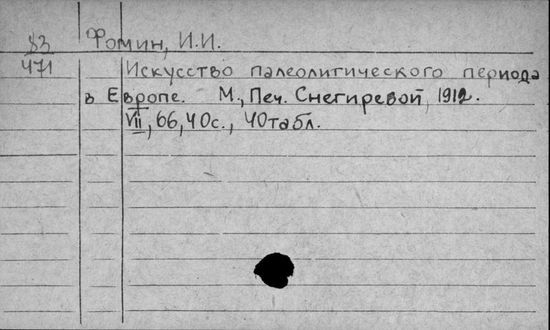 83 Фомин, И.И.
471 Искусство палеолитического периода
в Европе. М., Печ. Снегиревой, 1912.
VII, 66, 40с., 40табл.